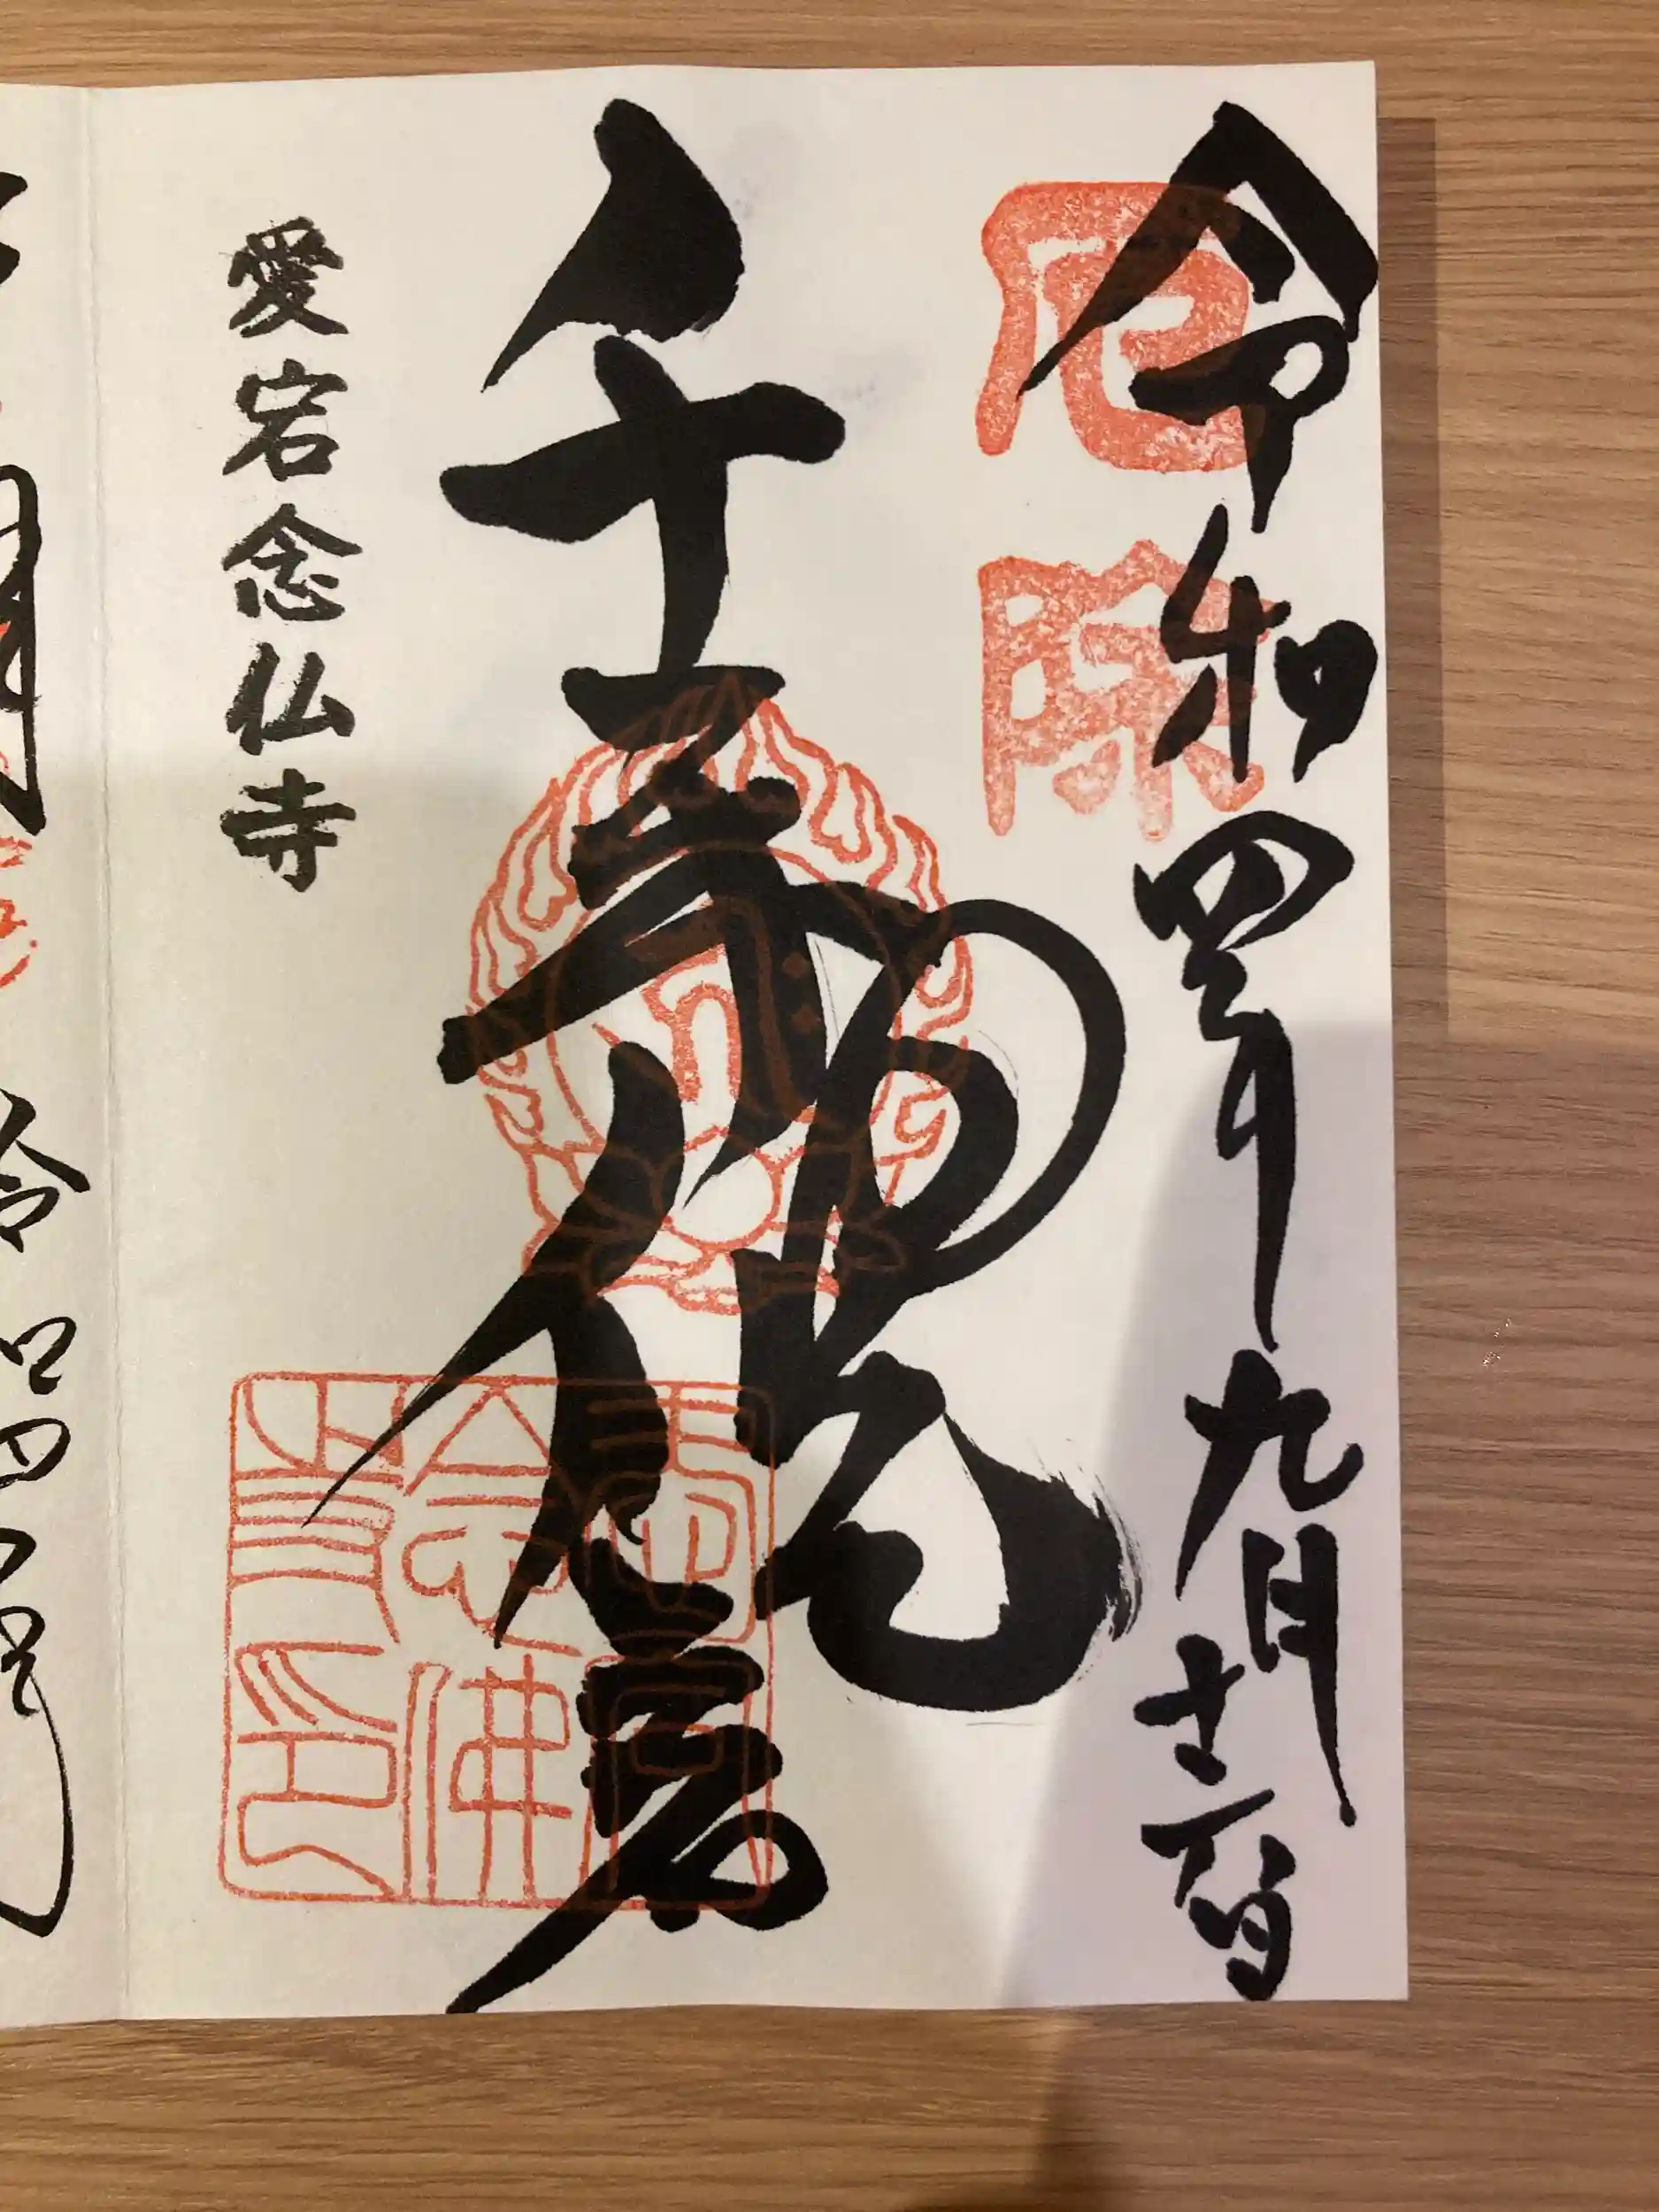 令和四年九月
厄除
千手観音
愛宕念仏寺
愛宕
念佛
寺印
令和四年